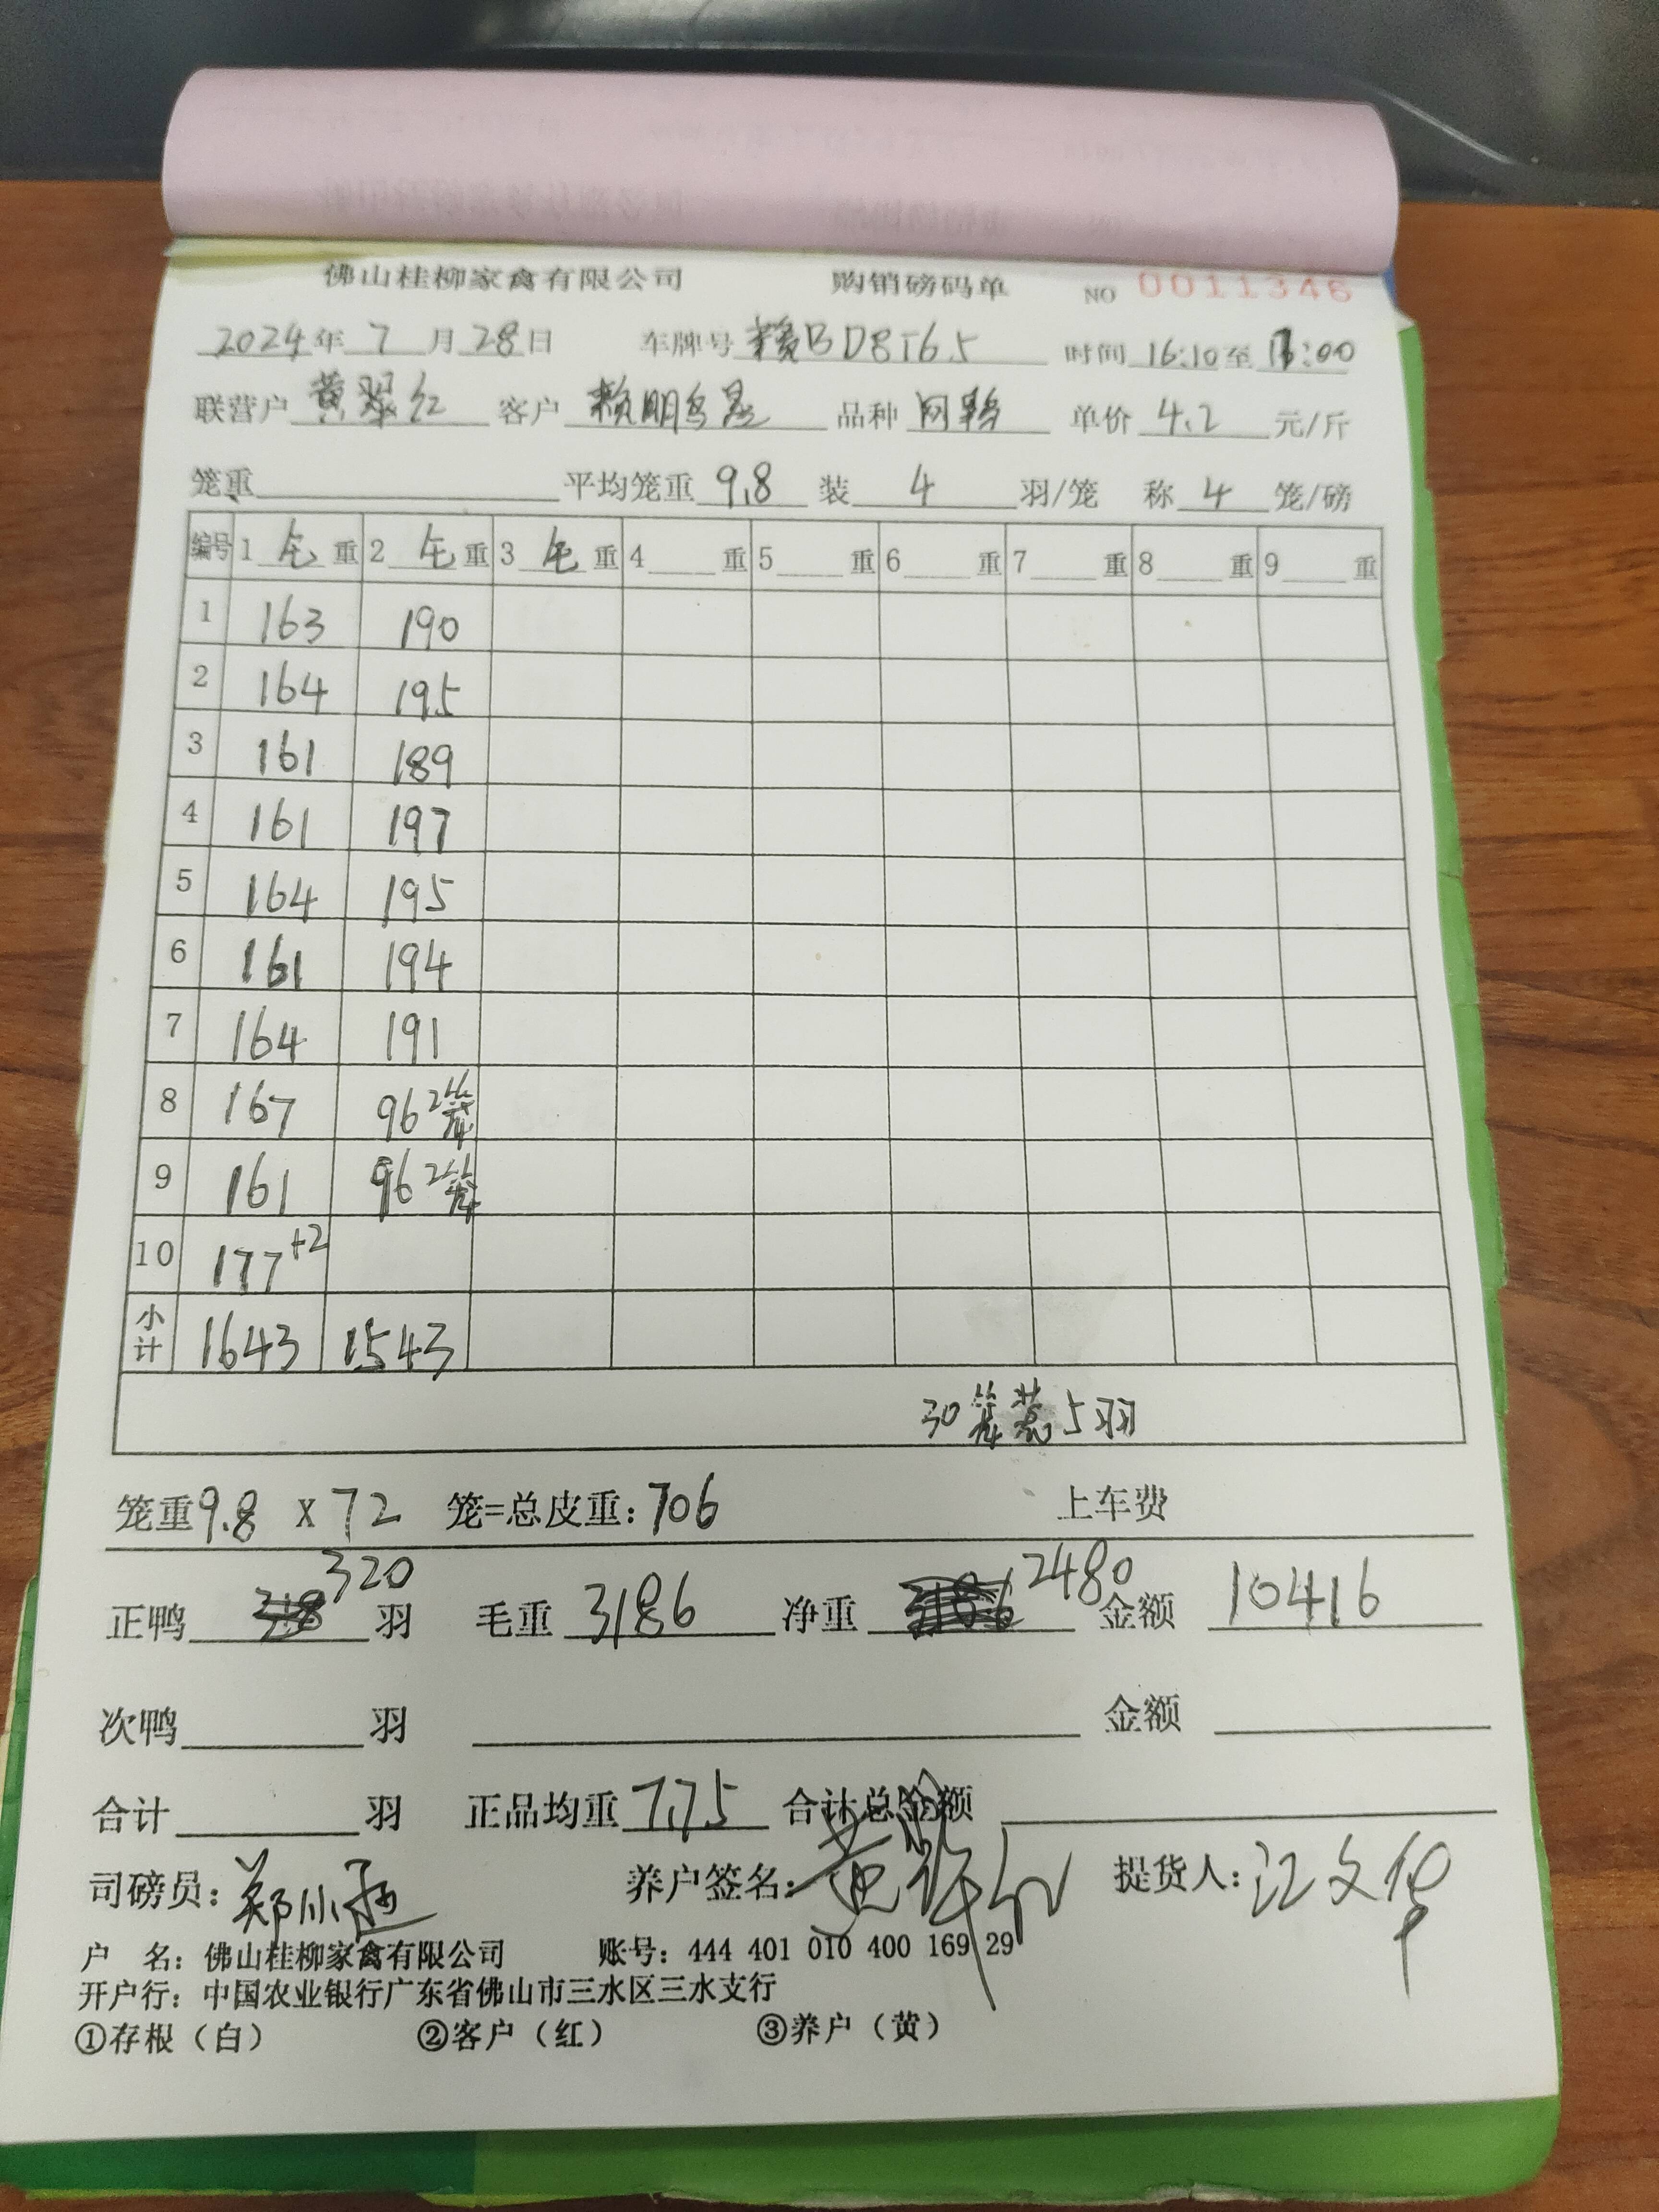 佛山桂柳家禽有限公司 购销磅码单 NO 0011346
2024年7月28日 车牌号 赣BD8T65 时间 16:10至18:00
联营户 黄翠红 客户 赖明 品种 网鸭 单价 4.2 元/斤
笼重 平均笼重 9.8 装 4 羽/笼 称 4 笼/磅
编号 1 毛 重 2 毛 重 3 毛 重 4 重 5 重 6 重 7 重 8 重 9 重
1 163 190
2 164 195
3 161 189
4 161 197
5 164 195
6 161 194
7 164 191
8 167 96 2笼
9 161 96 2笼
10 177+2
小计 1643 1543
30笼装5羽
笼重9.8 X 72 笼=总皮重:706 上车费
正鸭 320 羽 毛重 3186 净重 2480 金额 10416
次鸭 羽 金额
合计 羽 正品均重 7.75 合计总金额
司磅员:郑小 养户签名:黄翠红 提货人:江文华
户 名:佛山桂柳家禽有限公司 账号:444 401 010 400 169 29
开户行:中国农业银行广东省佛山市三水区三水支行
①存根(白) ②客户(红) ③养户(黄)